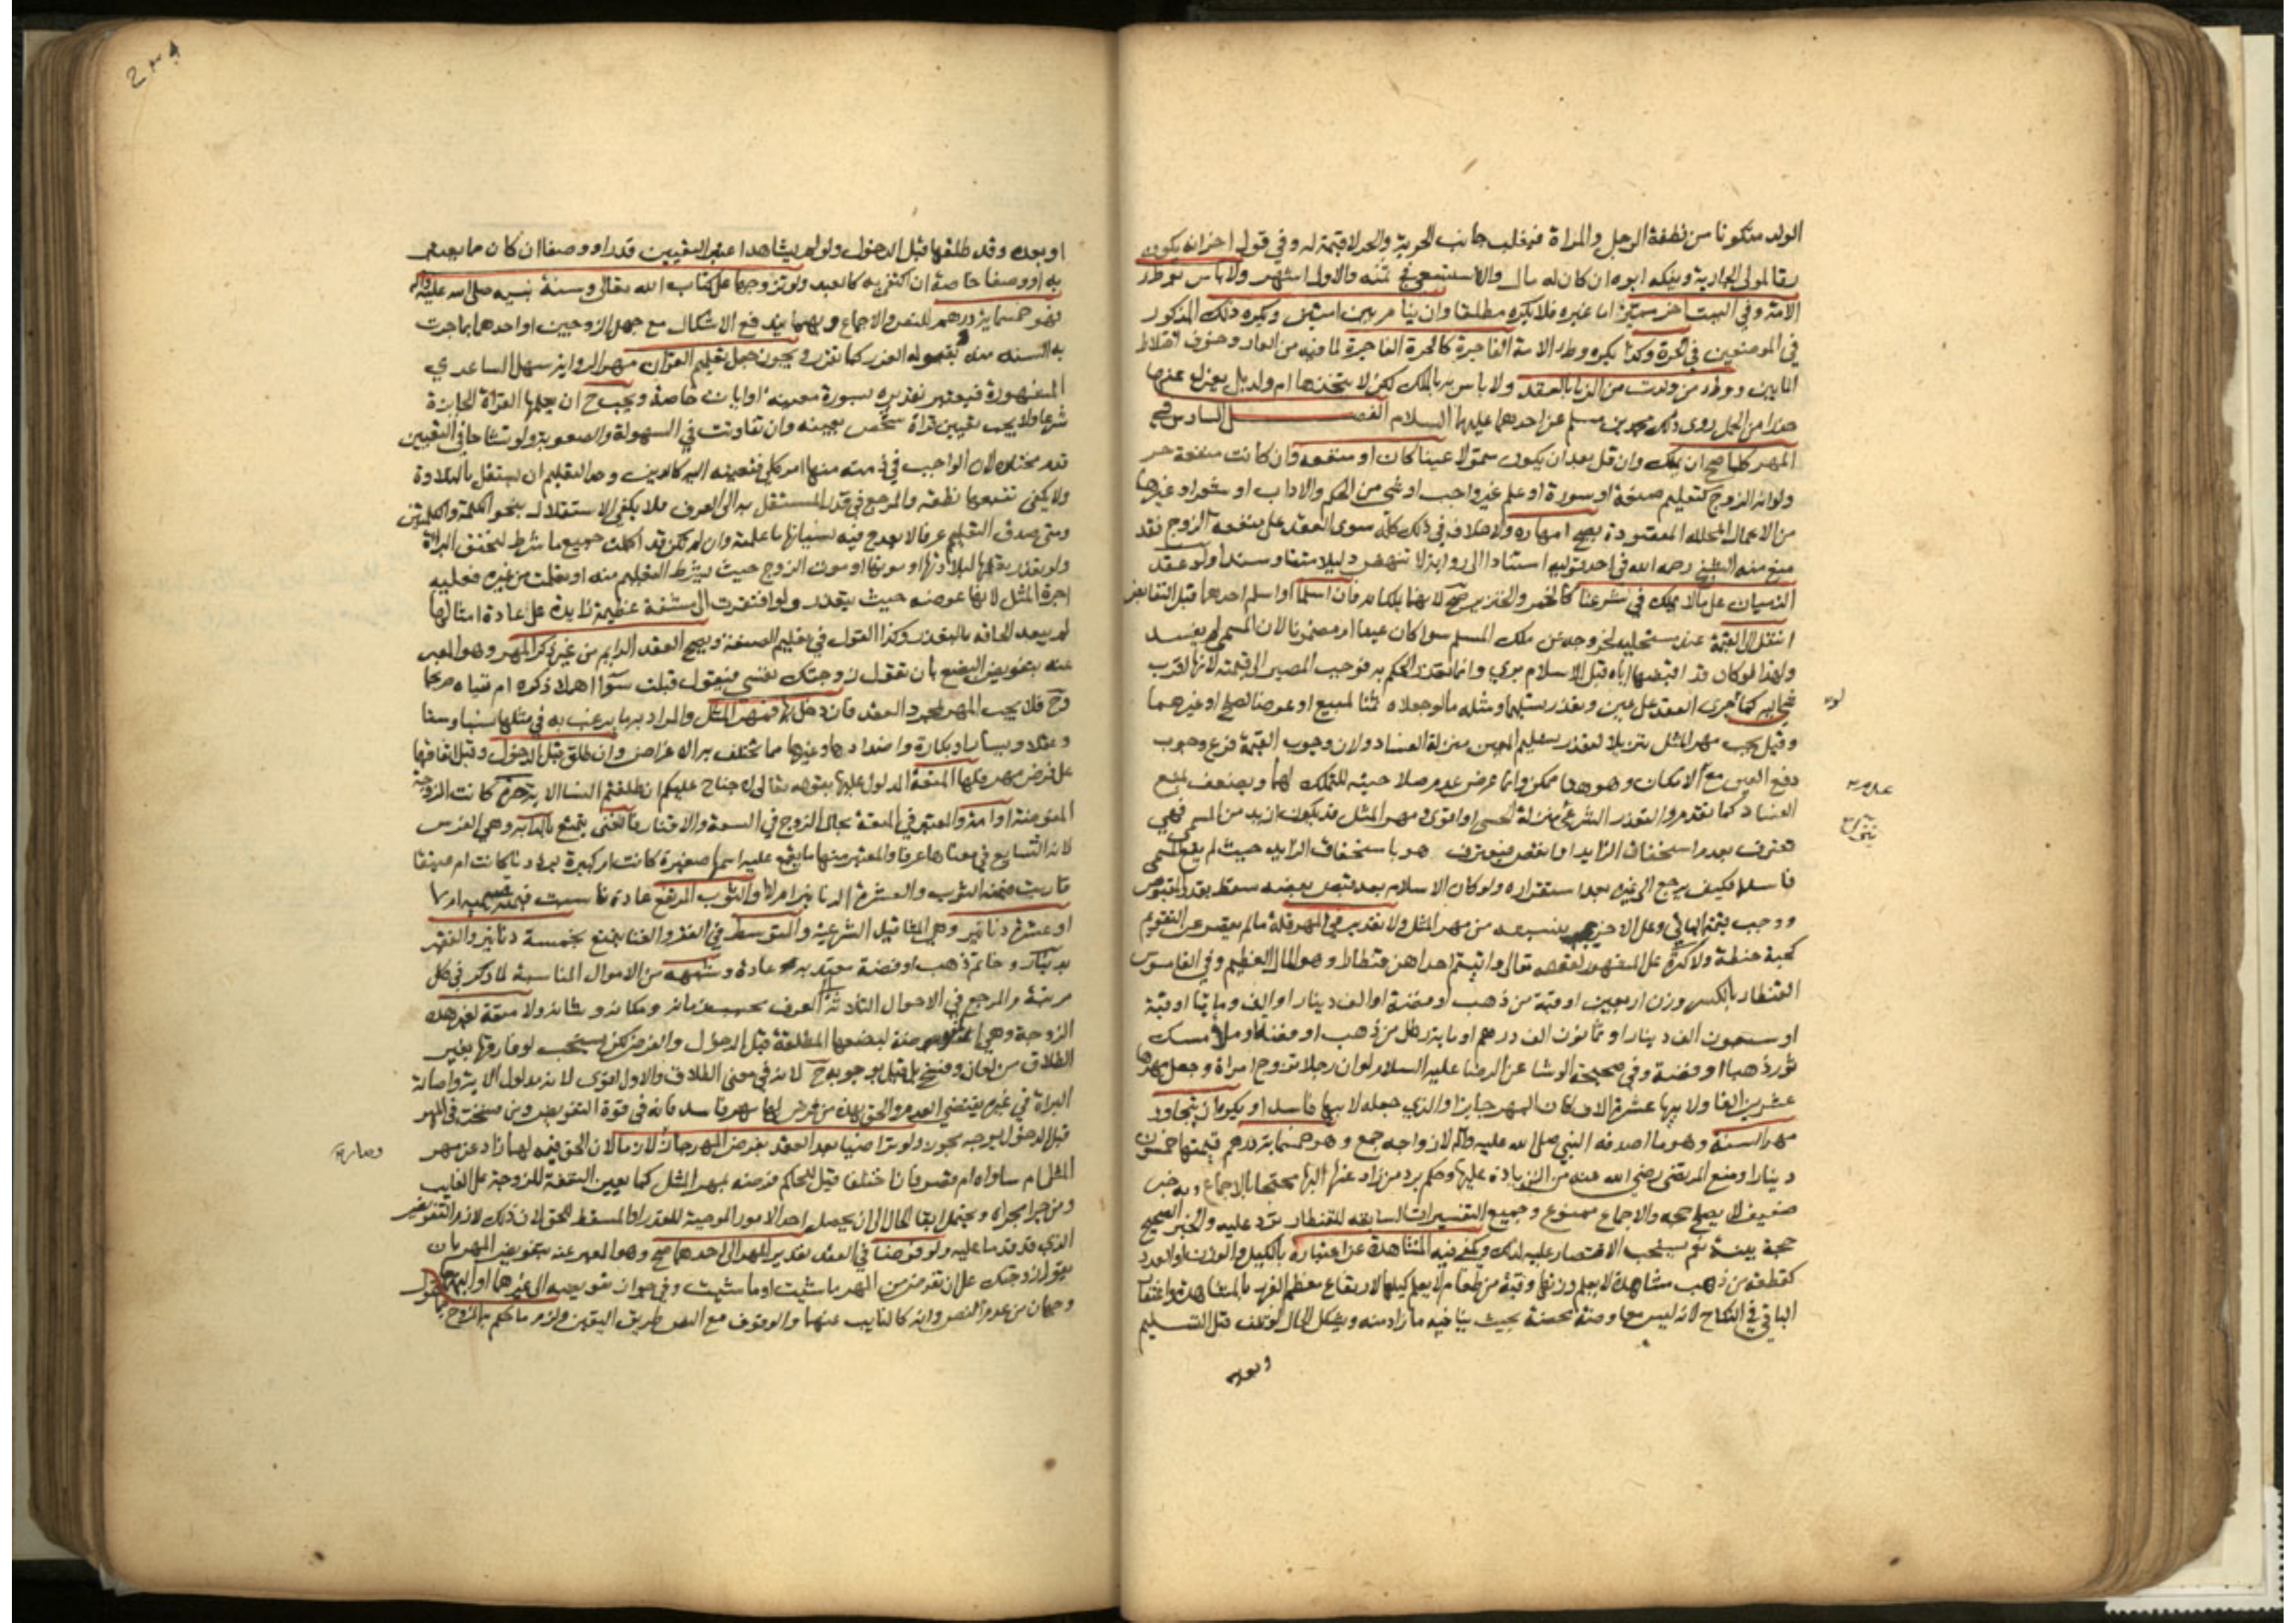 الولد متكونا من نطفة الرجل والمراة فيغلب جانب الحرية والحر لا قيمة له وفي قول اخر انه يكون
رقا لمولى الجارية ويفكه ابوه ان كان له مال والا استسعى في ثمنه والاول اشهر ولا باس بوطء
الامة وفي البيت اخر مميز اما غيره فلا يكره مطلقا وان ينام بين امتين ويكره ذلك المذكور
في الموضعين في الحرة وكذا يكره وطء الامة الفاجرة كالحرة الفاجرة لما فيه من العار وخوف اختلاط
المايين ووطء من ولدت من الزنا بالعقد ولا باس بالملك لكن لا يتخذها ام ولد بل يعزل عنها
حذرا من الحمل روى ذلك محمد بن مسلم عن احدهما عليهما السلام الفصل السادس في
المهر كلما صح ان يملك وان قل بعد ان يكون متمولا عينا كان او منفعة وان كانت منفعة حر
ولو انه الزوج كتعليم صنعة او سورة او علم غير واجب او شي من الحكم والاداب او شعر او غيرها
من الاعمال المحللة المقصودة يصح امهاره ولا خلاف في ذلك كله سوى العقد على منفعة الزوج فقد
منع منه الشيخ رحمه الله في احد قوليه استنادا الى رواية لا تنهض دليلا متنا وسندا ولو عقد
الذميان على ما لا يملك في شرعنا كالخمر والخنزير صح لانهما يملكانه فان اسلما او اسلم احدهما قبل التقابض
انتقل الى القيمة عند مستحليه لخروجه عن ملك المسلم سوا كان عينا ام مضمونا لان المسمى لم يفسد
ولهذا لو كان قد اقبضها اياه قبل الاسلام بري وانما تعذر الحكم به فوجب المصير الى قيمته لانها اقرب
شي اليه كما جرى العقد على عين وتعذر تسليمها ومثله ما لو جعلاه ثمنا لمبيع او عوضا لصلح او غيرهما
وقيل يجب مهر المثل تنزيلا لتعذر تسليم العين منزلة الفساد ولان وجوب القيمة فرع وجوب
دفع العين مع الامكان وهو هنا ممكن وانما عرض عدم صلاحيته للتملك لهما ويضعف بمنع
الفساد كما تقدم والتعذر الشرعي منزل منزلة الحسي او اقوى ومهر المثل قد يكون ازيد من المسمى فهي
تعترف بعدم استحقاق الزايد او انقص فيعترف هو باستحقاق الزايد حيث لم يقع المسمى
فاسدا فكيف يرجع الى غيره بعد استقراره ولو كان الاسلام بعد قبض بعضه سقط بقدر المقبوض
ووجب قيمة الباقي وعلى الاخر يجب بنسبته من مهر المثل ولا تقدير في المهر قلة ما لم يقصر عن التقويم
كحبة حنطة ولا كثرة على المشهور لقوله تعالى واتيتم احداهن قنطارا وهو المال العظيم وفي القاموس
القنطار بالكسر وزن اربعين اوقية من ذهب او فضة او الف دينار او الف ومايتا اوقية
او سبعون الف دينار او ثمانون الف درهم او ماية رطل من ذهب او فضة او ملا مسك
ثور ذهبا او فضة وفي صحيحة الوشا عن الرضا عليه السلام لو ان رجلا تزوج امراة وجعل مهرها
عشرين الفا ولابيها عشرة الاف كان المهر جايزا والذي جعله لابيها فاسدا ويكره ان يتجاوز
مهر السنة وهو ما اصدقه النبي صلى الله عليه واله لازواجه جمع وهو خمسماية درهم قيمتها خمسون
دينارا ومنع المرتضى رضي الله عنه من الزيادة عليها وحكم برد من زاد عنها اليها محتجا بالاجماع وبه خبر
ضعيف لا يصلح حجة والاجماع ممنوع وجميع التفسيرات السابقة للقنطار ترد عليه والخبر الصحيح
حجة بينة نعم يستحب الاقتصار عليه لذلك ويكفي فيه المشاهدة عن اعتباره بالكيل والوزن والعدد
كقطعة من ذهب مشاهدة لا يعلم وزنها وقبة من طعام لا يعلم كيلها لارتفاع معظم الغرر بالمشاهدة واغتفار
الباقي في النكاح لانه ليس معاوضة محضة بحيث ينافيه ما زاد منه ويشكل الحال لو تلف قبل التسليم
وبعده
او بعده وقد طلقها قبل الدخول ولو لم يشاهدا اعتبر التعيين قدرا ووصفا ان كان مما يعتبر
به او وصفا خاصة ان اكتفى به كالعبد ولو تزوجها على كتاب الله تعالى وسنة نبيه صلى الله عليه واله
فهو خمسماية درهم للنص والاجماع وبهما يندفع الاشكال مع جهل الزوجين او احدهما بما جرت
به السنة منه بقبوله الغرر كما تقرر ويجوز جعل تعليم القران مهرا لرواية سهل الساعدي
المشهورة فيعتبر تقديره بسورة معينة او ايات خاصة ويجب ح ان يعلمها القراة الجايزة
شرعا ولا يجب تعيين قراة شخص بعينه وان تفاوتت في السهولة والصعوبة ولو تشاحا في التعيين
قدم مختاره لان الواجب في ذمته منها امر كلي فتعيينه اليه كالدين وحد التعليم ان تستقل بالتلاوة
ولا يكفي تتبعها نطقه والمرجع في قدر المستقل به الى العرف فلا يكفي الاستقلال بنحو الكلمة والكلمتين
ومتى صدق التعليم عرفا لا يقدح فيه نسيانها ما علمته وان لم تكن قد اكملت جميع ما شرط لتحقق البراة
ولو تعذر تعلمها لبلادتها او موتها او موت الزوج حيث يشترط التعليم منه او تعلمت من غيره فعليه
اجرة المثل لانها عوضه حيث يتعذر ولو افتقرت الى مشقة عظيمة زايدة على عادة امثالها
لم يبعد الحاقه بالتعذر وكذا القول في تعليم الصنعة ويصح العقد الدايم من غير ذكر المهر وهو المعبر
عنه بتفويض البضع بان تقول زوجتك نفسي فيقول قبلت سوا اهملا ذكره ام نفياه صريحا
وح فلا يجب المهر بمجرد العقد فان دخل بها فمهر المثل والمراد به ما يرغب به في مثلها نسبا وسنا
وعقلا ويسارا وبكارة واضدادها وغيرها مما تختلف به الاغراض وان طلق قبل الدخول وقبل اتفاقهما
على فرض مهر فلها المتعة المدلول عليها بقوله تعالى لا جناح عليكم ان طلقتم النسا الاية حرة كانت الزوجة
المفوضة او امة والمعتبر في المتعة بحال الزوج في السعة والاقتار فالغني يمتع بالدابة وهي الفرس
لانه الشايع في معناها عرفا والمعتبر منها ما يقع عليه اسمها صغيرة كانت ام كبيرة برذونا كانت ام عتيقا
قاربت قيمته الثوب والعشرة الدنانير ام لا والثوب المرتفع عادة ناسبت قيمته قسيميه ام لا
او عشرة دنانير وهي المثاقيل الشرعية والمتوسط في الفقر والغنا يمتع بخمسة دنانير والفقير
بدينار وخاتم ذهب او فضة معتد به عادة وشبهه من الاموال المناسبة لما ذكر في كل
مرتبة والمرجع في الاحوال الثلاثة الى العرف بحسب زمانه ومكانه وشانه ولا متعة لغير هذه
الزوجة وهي المفوضة لبضعها المطلقة قبل الدخول والفرض لكن يستحب لو فارقها بغير
الطلاق من لعان وفسخ بل قيل بوجوبه ح لانه في معنى الطلاق والاول اقوى لانه مدلول الاية واصالة
البراة في غيره يقتضي العدم والحق بهذه من فرض لها مهر فاسد فانه في قوة التفويض ومن فسخت في المهر
قبل الدخول بوجه مجوز ولو تراضيا بعد العقد بفرض المهر جاز لان الحق فيه لهما زاد عن مهر
المثل ام ساواه ام قصر فان اختلفا قيل للحاكم فرضه بمهر المثل كما يعين النفقة للزوجة على الغايب
ومن جرا مجراه ويحتمل ابقا الحال الى ان يحصل احد الامور الموجبة للقدر او المسقط للحق لان ذلك لازم التفويض
الذي قد قدما عليه ولو فوضا في العقد تقدير المهر الى احدهما صح وهو المعبر عنه بتفويض المهر بان
يقول زوجتك على ان تفرض من المهر ما شيت او ما شيت وفي جواز تفويضه الى غيرهما او اليهما
وجهان من عدم النص وانه كالنايب عنهما والوقوف مع النص طريق اليقين ولزم ما حكم به الزوج مما